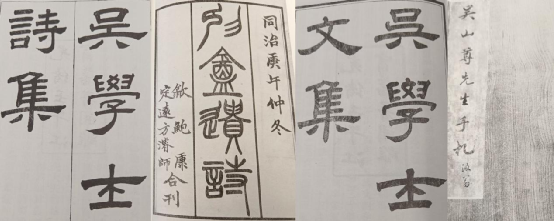 吳學士
詩集
同治庚午仲冬
抑盦遺詩
歙鮑康
定遠方濬師
合刊
吳學士
文集
吴山尊先生手札